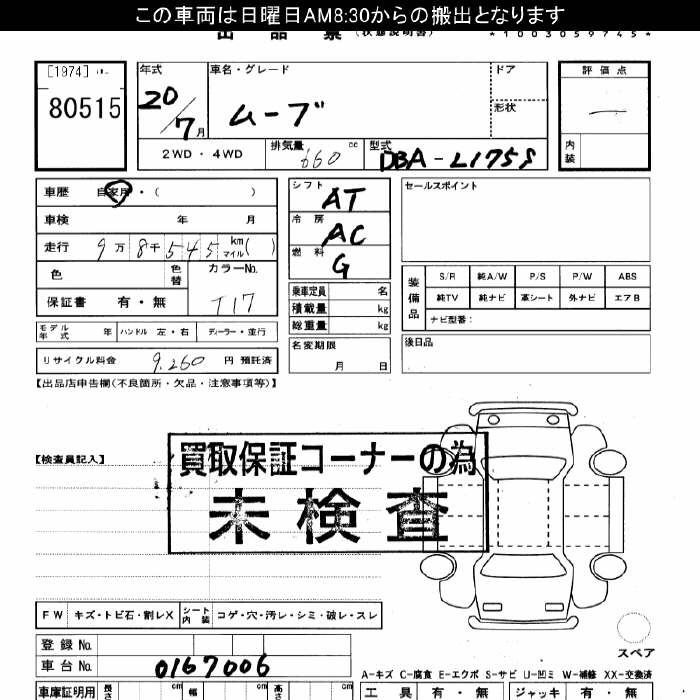 この車両は日曜日AM8:30からの搬出となります
出品票 (状態説明書) *1003059745*
[1974]
80515
年式 車名・グレード ドア 評価点
20/7月 ムーブ 形状 —
2WD・4WD 排気量 660 cc 型式 DBA-L175S 内装
車歴 自家用・( ) シフト AT セールスポイント
車検 年 月 冷房 AC
走行 9万8千545 km マイル( ) 燃料 G
色 色替 カラーNo. T17
保証書 有・無
乗車定員 名
積載量 kg
総重量 kg
装備品 S/R 純A/W P/S P/W ABS
純TV 純ナビ 革シート 外ナビ エアB
ナビ型番:
モデル年式 年 ハンドル 左・右 ディーラー・並行
名変期限 月 日
後日品
リサイクル料金 9,260 円 預託済
【出品店申告欄(不良箇所・欠品・注意事項等)】
【検査員記入】
買取保証コーナーの為
未検査
FW キズ・トビ石・割レX シート内装 コゲ・穴・汚レ・シミ・破レ・スレ
登録No.
車台No. 0167006
スペア
A-キズ C-腐食 E-エクボ S-サビ U-凹ミ W-補修 XX-交換済
車庫証明用 長さ cm 幅 cm 高さ cm 工具 有・無 ジャッキ 有・無